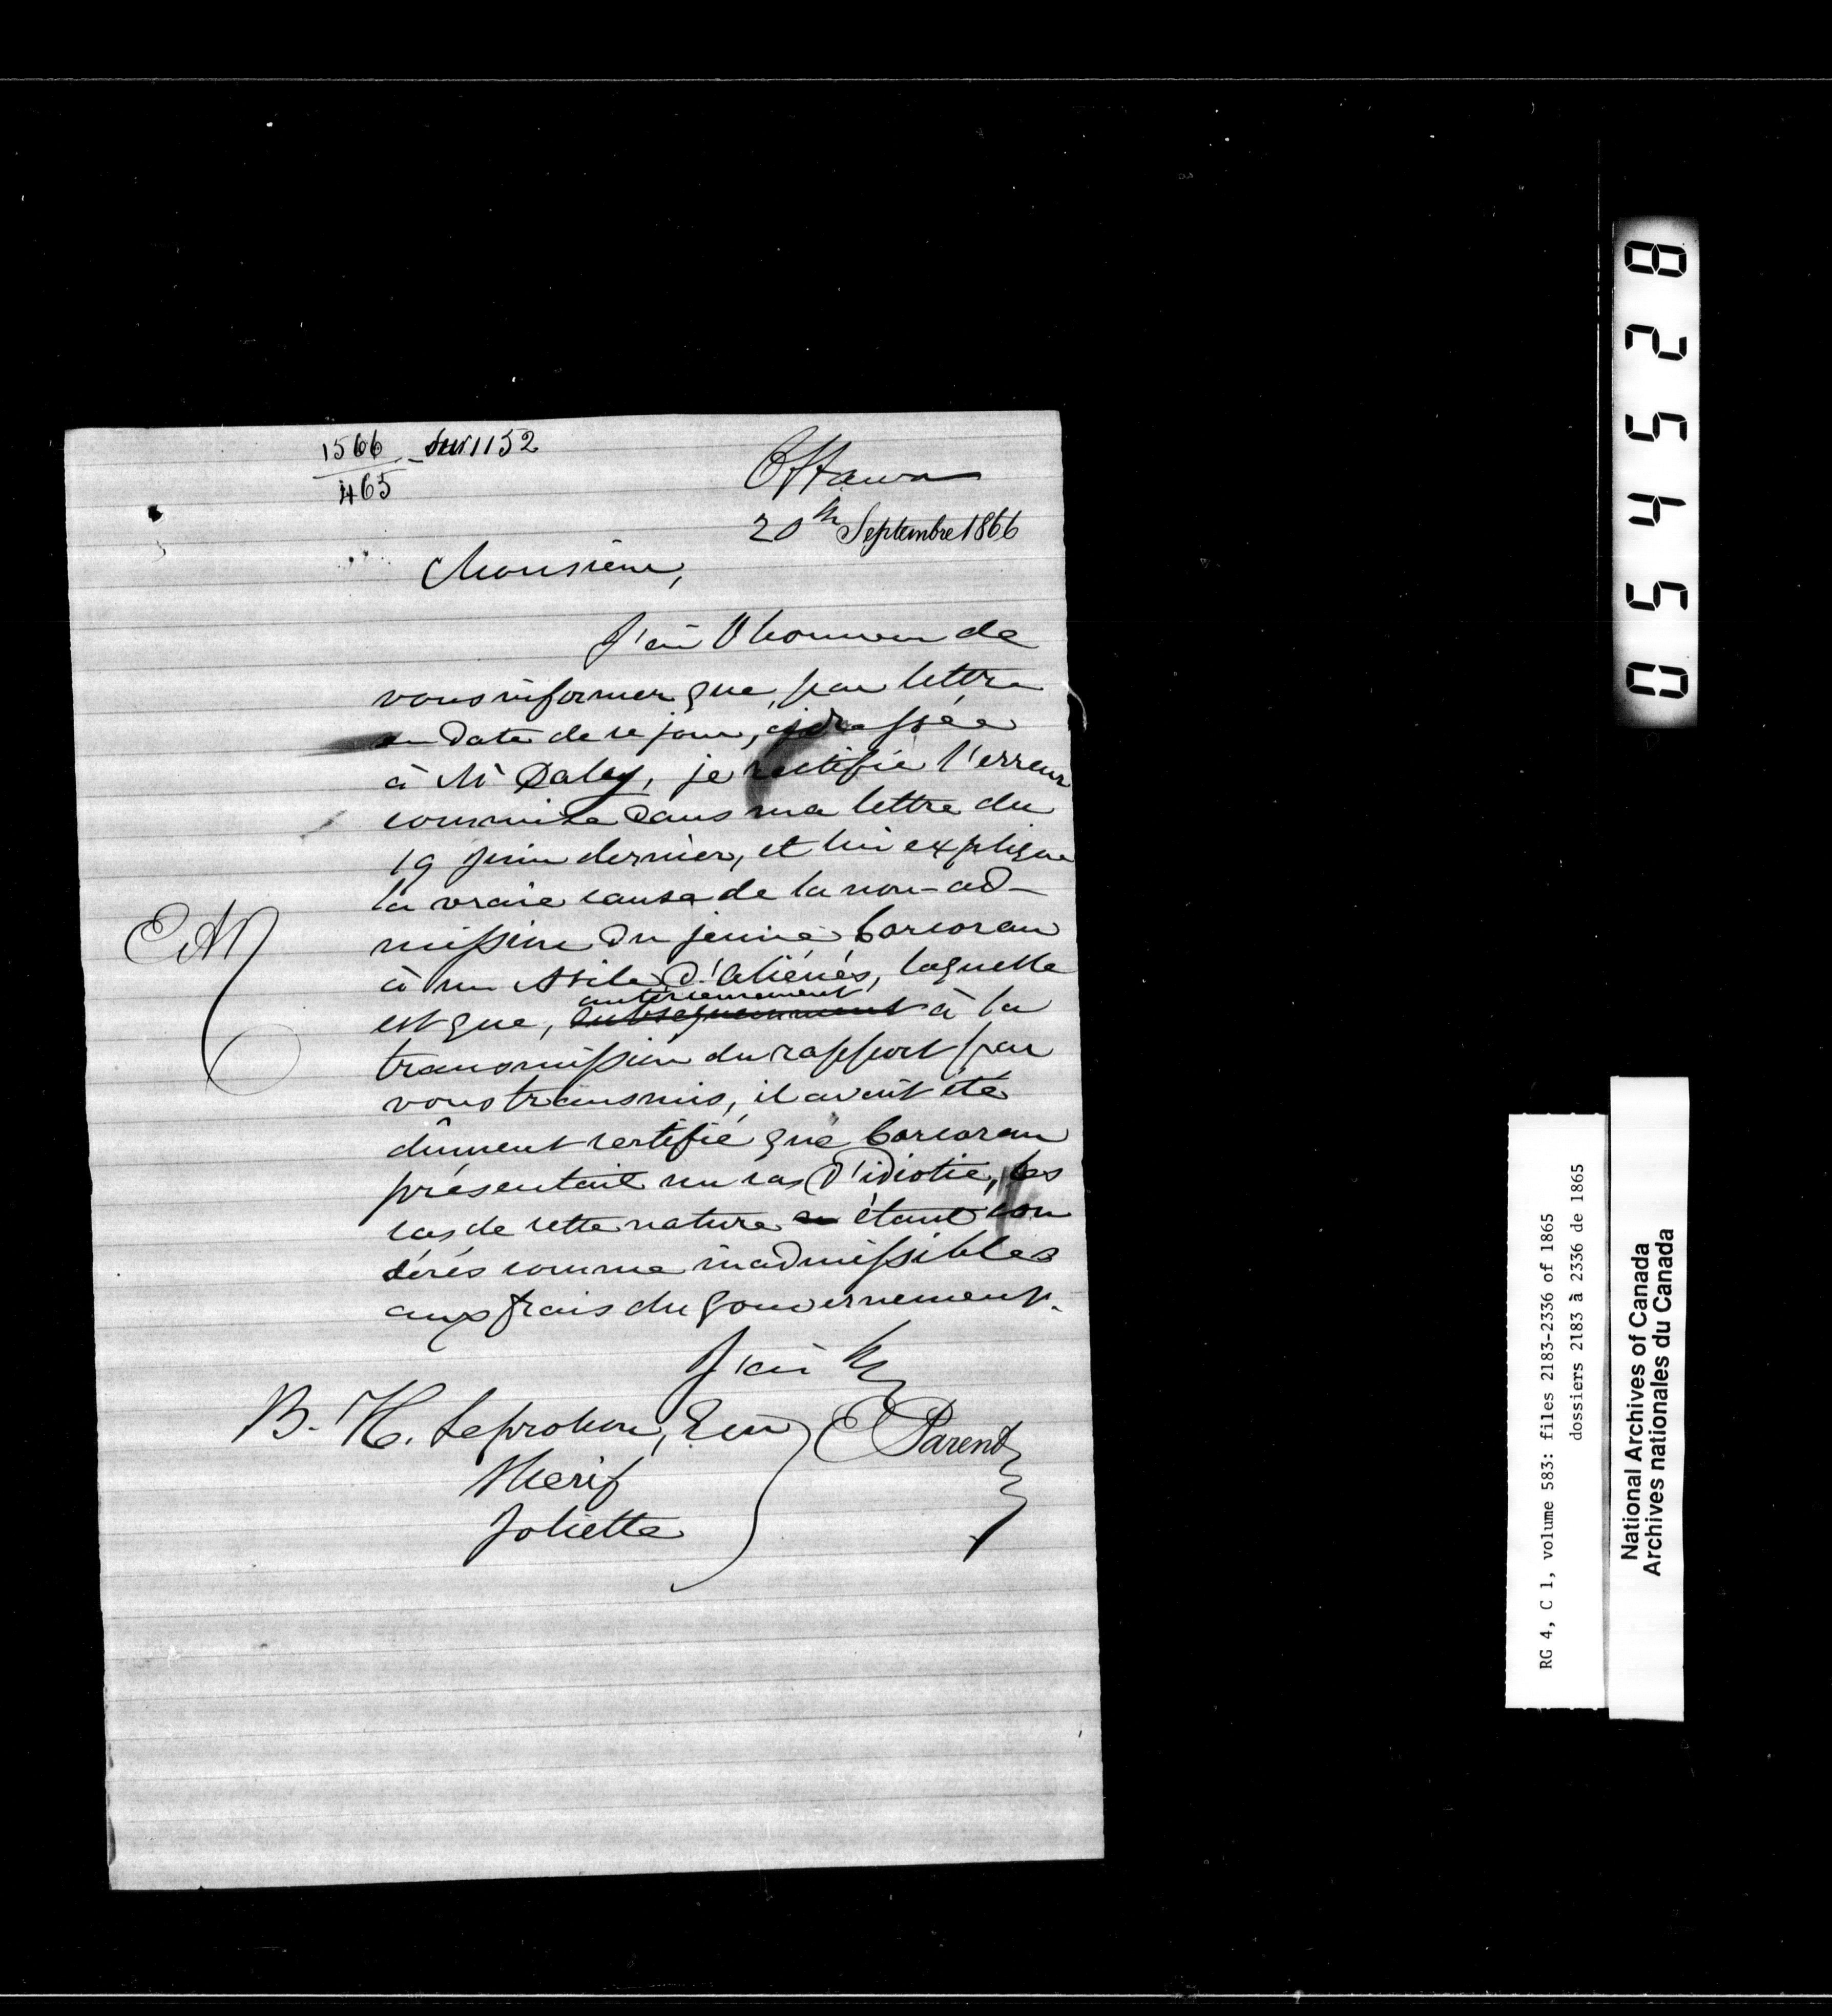 1566 - sur 1152
465
Ottawa
20th Septembre 1866
Monsieur,
J'ai l'honneur de
vous informer que, par lettre
en date de ce jour, adressée
à Mr Daley, je rectifie l'erreur
commise dans ma lettre du
19 juin dernier, et lui explique
la vraie cause de la non-ad-
mission du jeune Corcoran
à un Asile d'aliénés, laquelle
antérieurement
est que, subséquemment à la
transmission du rapport par
vous transmis, il avait été
dûment certifié que Corcoran
présentait un cas d'idiotie, les
cas de cette nature en étant con
dérés comme inadmissibles
aux frais du gouvernement.
J'ai &c
B. H. Leprohon, Ecr
E Parent
Shérif
Joliette
054528
RG 4, C 1, volume 583: files 2183-2336 of 1865
dossiers 2183 à 2336 de 1865
National Archives of Canada
Archives nationales du Canada